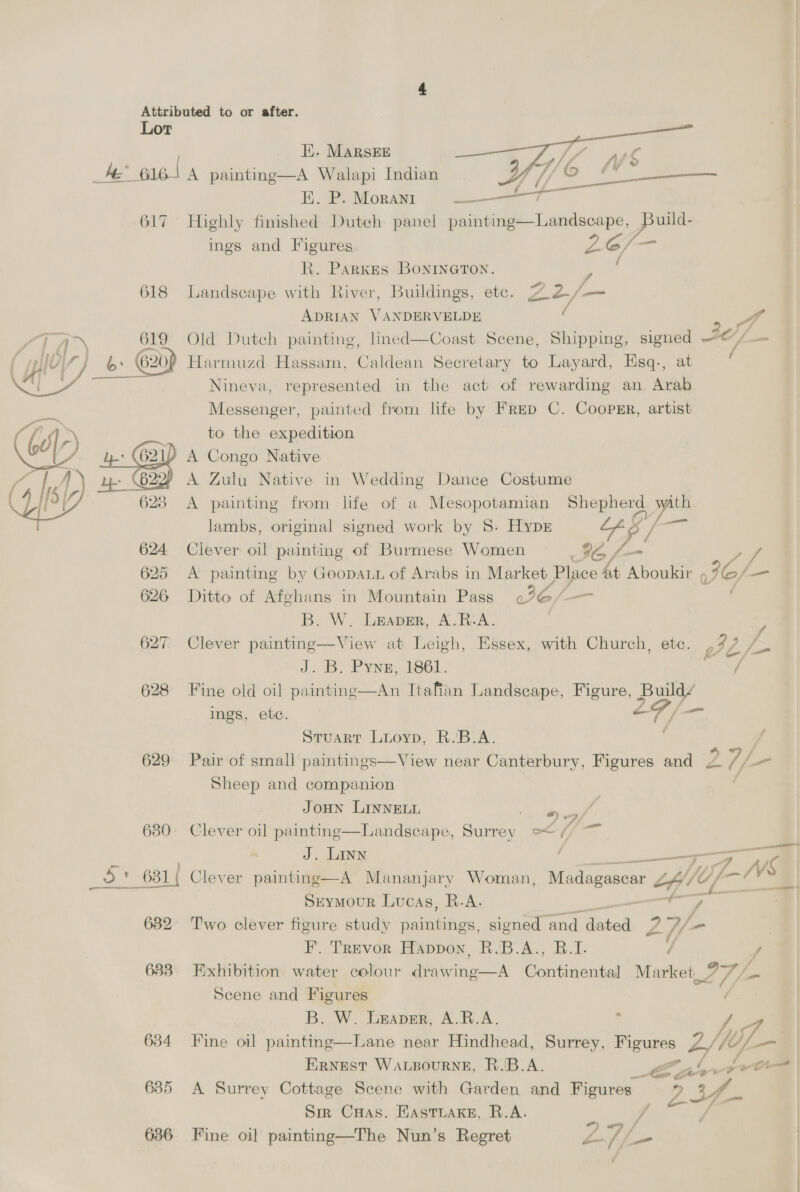 4
Attributed to or after.
Lot
E. Marsee
616 A painting—A Walapi Indian
E. P. Morani
617 Highly finished Dutch panel painting—Landscape, Build-
ings and Figures 26/-
R. Parkes Bonington.
618 Landscape with River, Buildings, etc. 22/-
Adrian Vandervelde
619 Old Dutch painting, lined—Coast Scene, Shipping, signed
6· 620 Harmuzd Hassam, Caldean Secretary to Layard, Esq., at
Nineva, represented in the act of rewarding an Arab
Messenger, painted from life by Fred C. Cooper, artist
to the expedition
4· 621 A Congo Native
4· 622 A Zulu Native in Wedding Dance Costume
623 A painting from life of a Mesopotamian Shepherd with
lambs, original signed work by S. Hyde
624 Clever oil painting of Burmese Women 36/-
625 A painting by Goodall of Arabs in Market Place at Aboukir 36/-
626 Ditto of Afghans in Mountain Pass 36/-
B. W. Leader, A.R.A.
627 Clever painting—View at Leigh, Essex, with Church, etc. 32/-
J. B. Pyne, 1861.
628 Fine old oil painting—An Italian Landscape, Figure, Build-
ings, etc. 29/-
Stuart Lloyd, R.B.A.
629 Pair of small paintings—View near Canterbury, Figures and 27/-
Sheep and companion
John Linnell
630 Clever oil painting—Landscape, Surrey 27/-
J. Linn
5· 631 Clever painting—A Mananjary Woman, Madagascar
Seymour Lucas, R.A.
632 Two clever figure study paintings, signed and dated 27/-
F. Trevor Haddon, R.B.A., R.I.
633 Exhibition water colour drawing—A Continental Market 27/-
Scene and Figures
B. W. Leader, A.R.A.
634 Fine oil painting—Lane near Hindhead, Surrey, Figures
Ernest Walbourne, R.B.A.
635 A Surrey Cottage Scene with Garden and Figures 23/-
Sir Chas. Eastlake, R.A.
636 Fine oil painting—The Nun's Regret 27/-